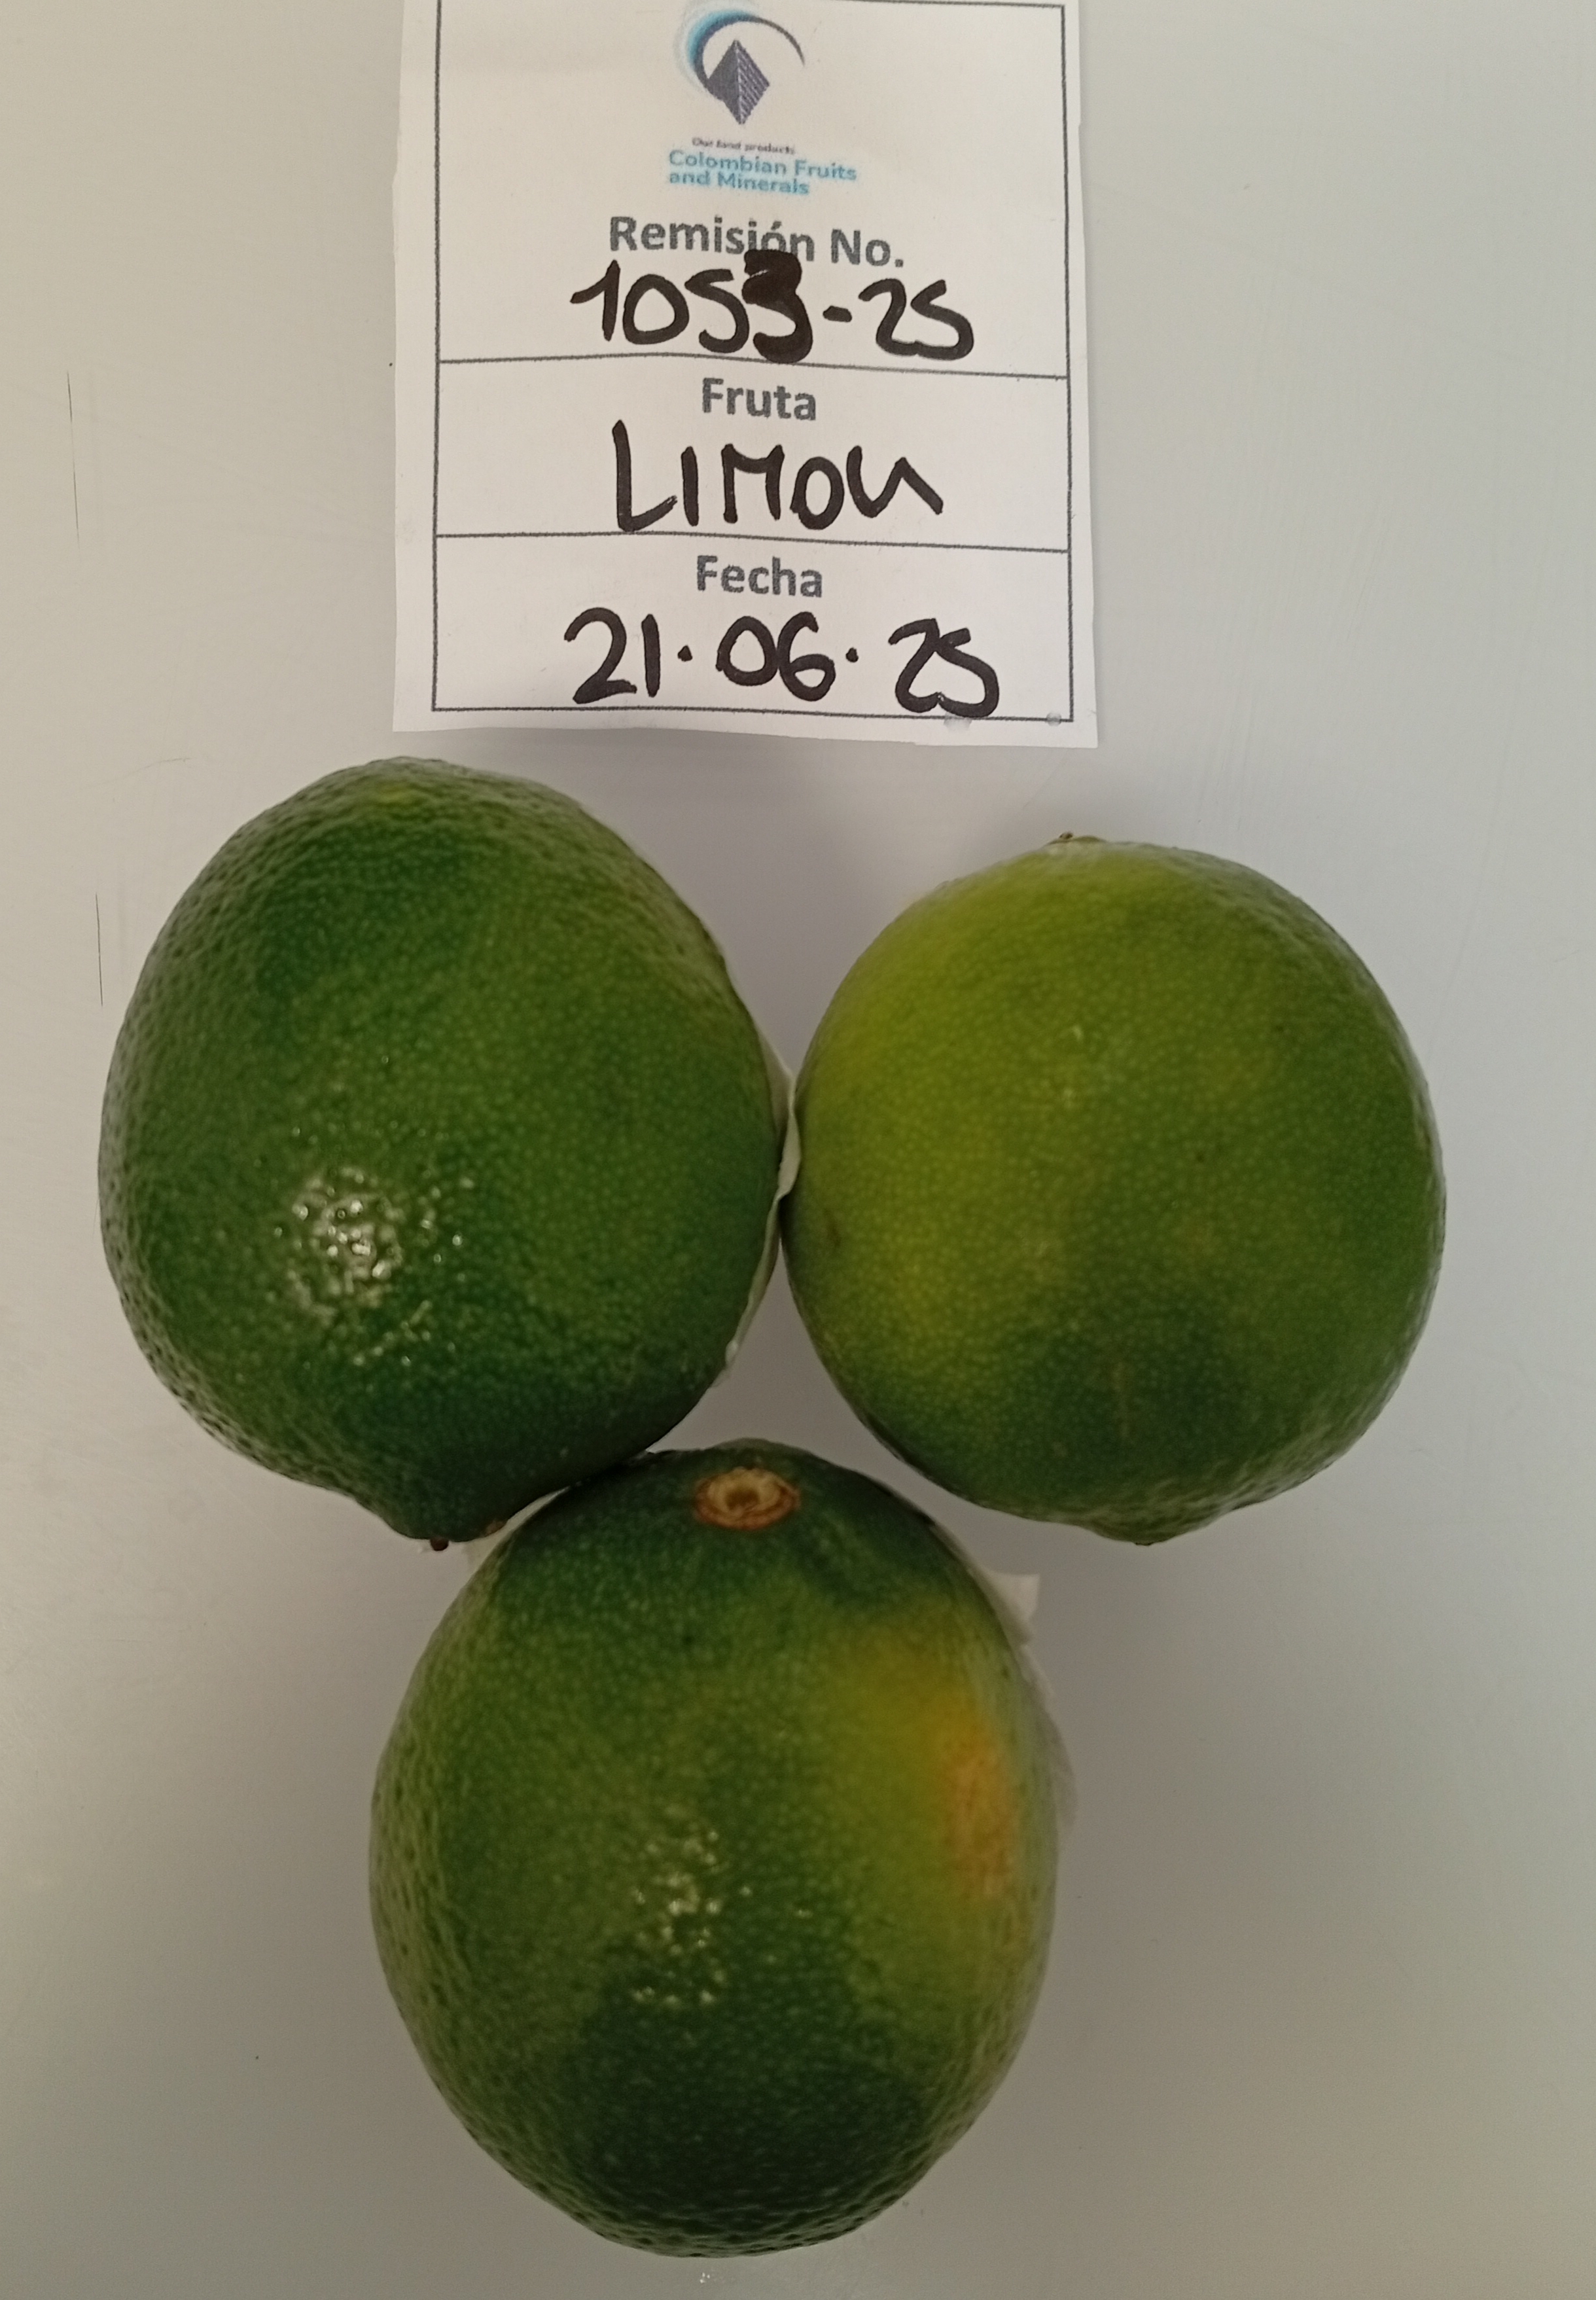 Our land products
Colombian Fruits
and Minerals
Remisión No.
1053-25
Fruta
LIMON
Fecha
21.06.25